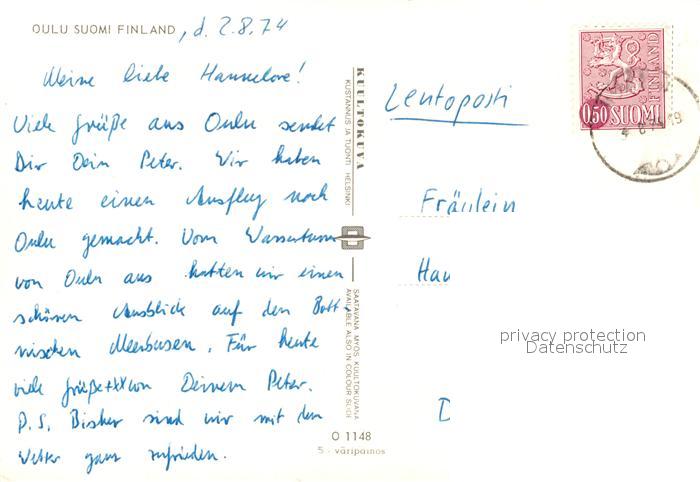 OULU SUOMI FINLAND, d. 2.8.74
Meine liebe Hannelore!
Viele Grüße aus Oulu sendet
Dir Dein Peter. Wir haben
heute einen Ausflug nach
Oulu gemacht. Vom Wasserturm
von Oulu aus hatten wir einen
schönen Ausblick auf den Bott-
nischen Meerbusen. Für heute
viele Grüße+XX von Deinem Peter.
P.S. Bisher sind wir mit dem
Wetter ganz zufrieden.
KUULTOKUVA
KUSTANNUS JA TUONTI HELSINKI
SAATAVANA MYÖS KUULTOKUVANA
AVAILABLE ALSO IN COLOUR SLIDE
O 1148
5 - väripainos
Lentoposti
0,50 SUOMI
FINLAND
Fräulein
Han
privacy protection
Datenschutz